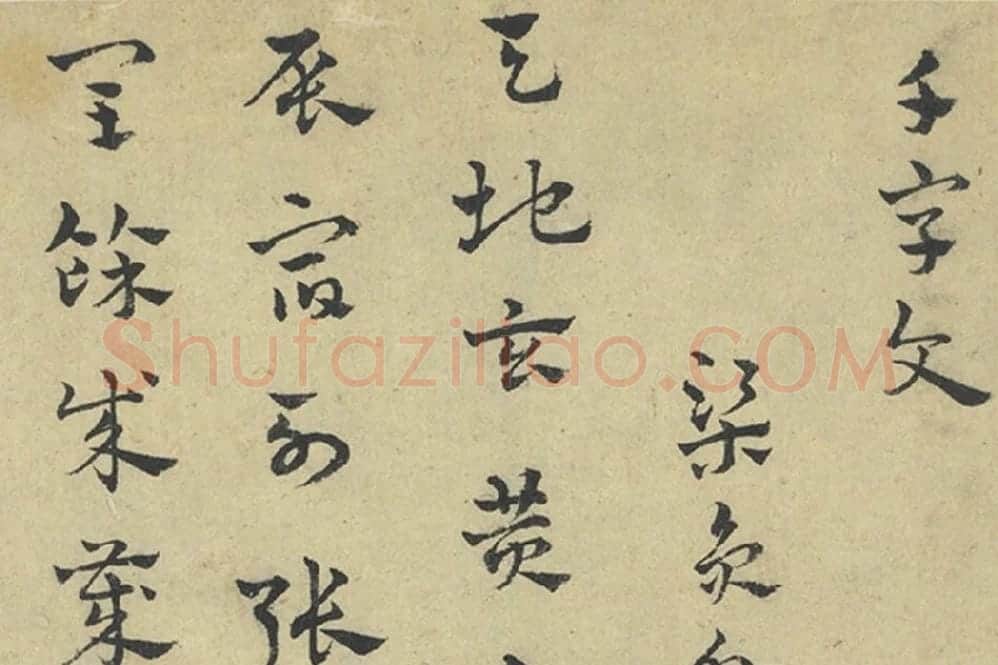 千字文
梁員
天地玄黄
辰宿列張
閏餘成歲
Shufaziliao.COM